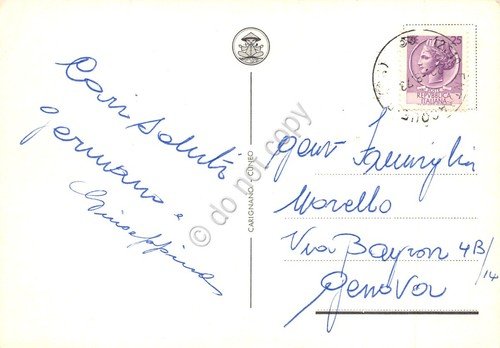 Cari saluti
germano e
Giuseppina
CARIGNANO - CUNEO
do not copy
25
POSTE
REPUBBLICA
ITALIANA
Gent Famiglia
Morello
Via Bayron 4B/14
Genova